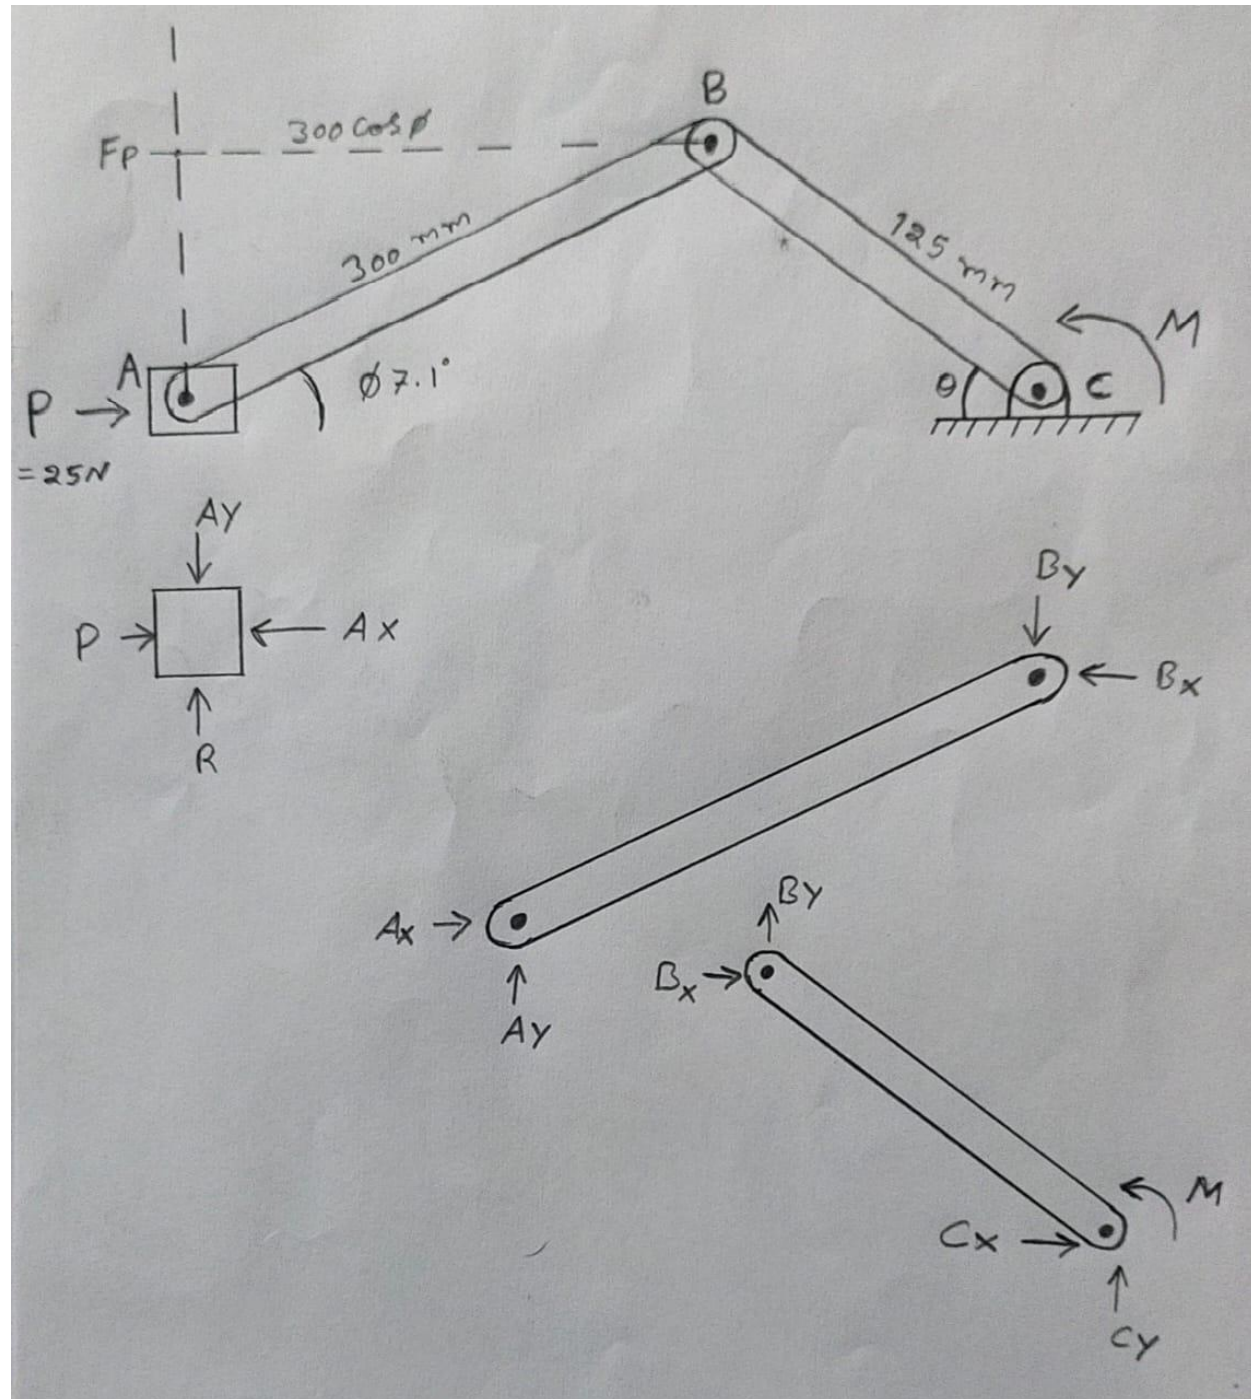 B
300 cos ø
Fp
300 mm
125 mm
M
A
ø 7.1°
θ
C
P
= 25N
Ay
P
Ax
R
By
Bx
Ax
Ay
By
Bx
M
Cx
Cy